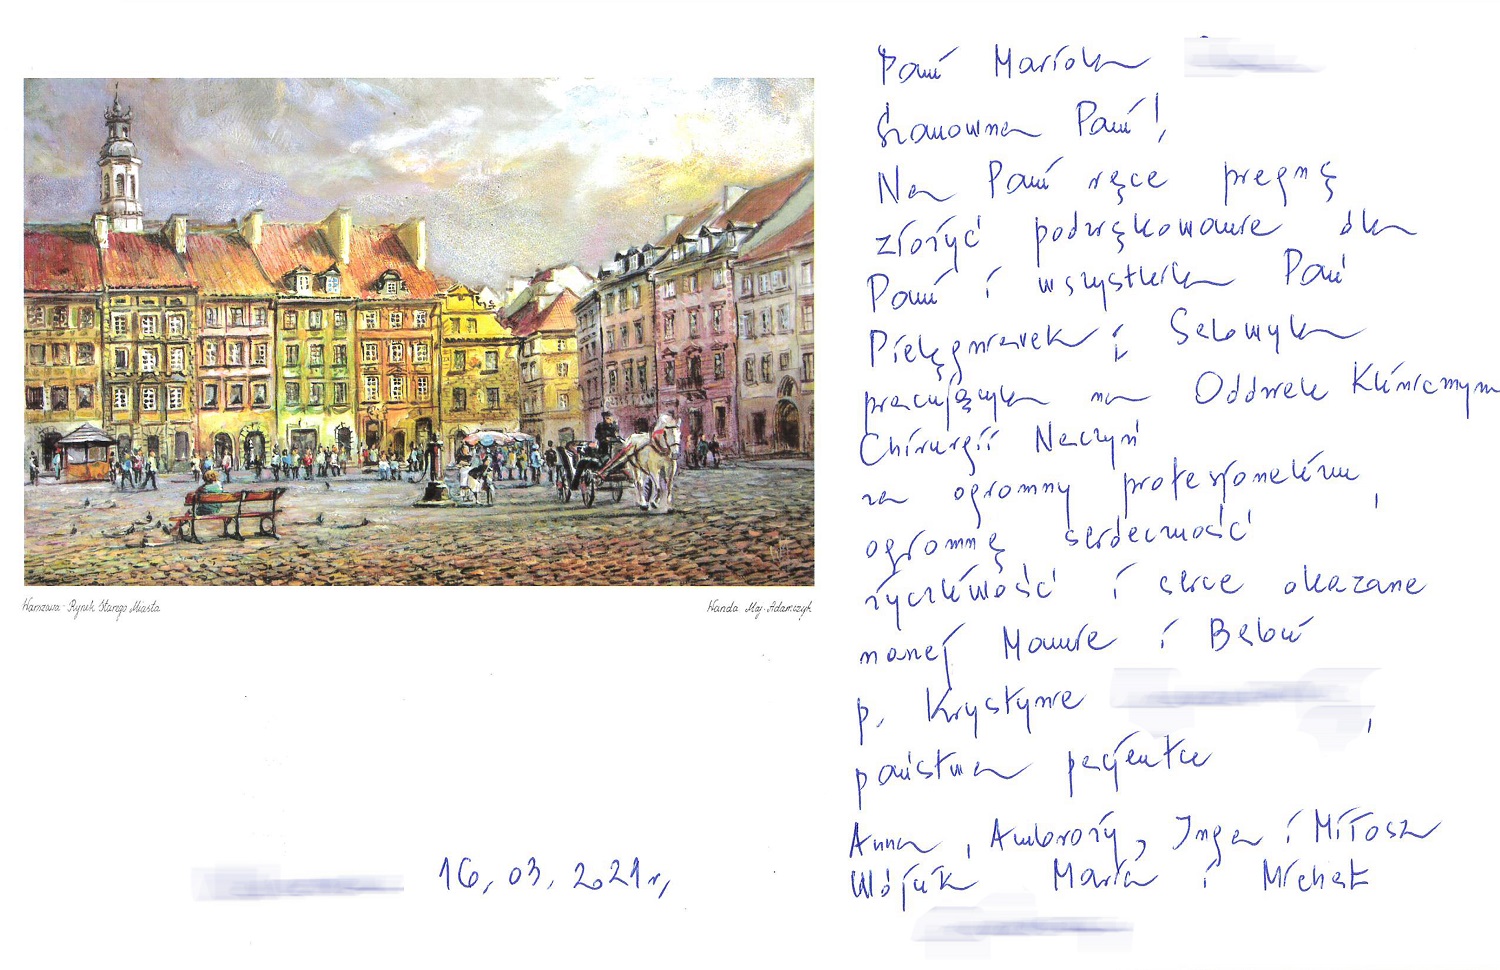 Warszawa - Rynek Starego Miasta
Wanda Maj-Adamczyk
16, 03, 2021r,
Pani Mariola
Szanowna Pani!,
Na Pani ręce pragnę
złożyć podziękowanie dla
Pani i wszystkich Pań
Pielęgniarek i Salowych
pracujących na Oddziale Klinicznym
Chirurgii Naczyń
za ogromny profesjonalizm,
ogromną serdeczność
życzliwość i serce okazane
naszej Mamie i Babci
p. Krystynie ,
państwa pacjentce
Anna, Ambroży, Inga i Miłosz
Wójcik Maria i Michał